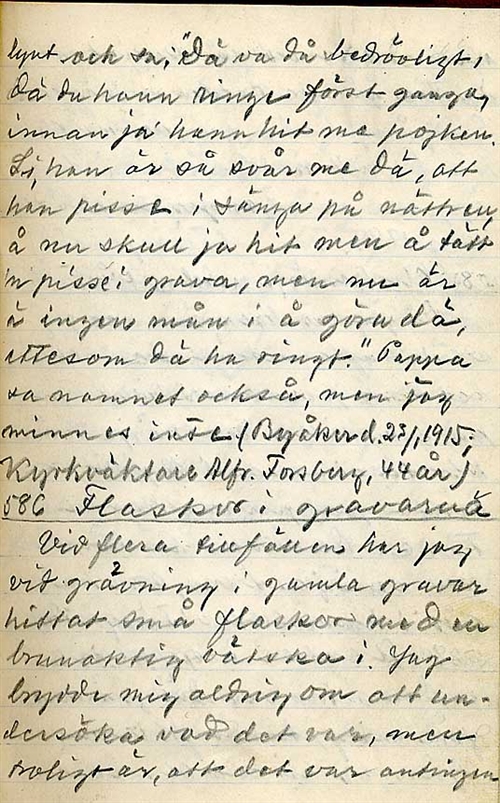 lynt och sa; "Dä va då bedrövligt,
dä du hann ringe först ganga,
innan ja hann hit me pojken.
Si, han är så svår me dä, att
han pisse i sänga på nättren,
å nu skull ja hit men å lätt
'n pisse i grava, men nu är
ä ingen mån i å göra dä,
ettesom dä ha ringt." Pappa
sa namnet också, men jag
minnes inte (Byåker d. 23/1 1915;
Kyrkväktare Alfr. Forsberg, 44 år)
586 Flaskor i gravarna
Vid flera tillfällen har jag
vid grävning i gamla gravar
hittat små flaskor med en
brunaktig vätska i. Jag
brydde mig aldrig om att un-
dersöka vad det var, men
troligt är, att det var antingen